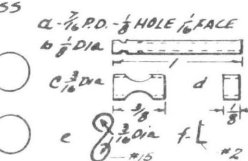 SS
a - 7/16 P.D. - 1/8 HOLE 1/16 FACE
b 1/8 DIA
1
c 3/16 DIA
d
3/8
1/8
e 3/16 DIA
f-
#15
#2